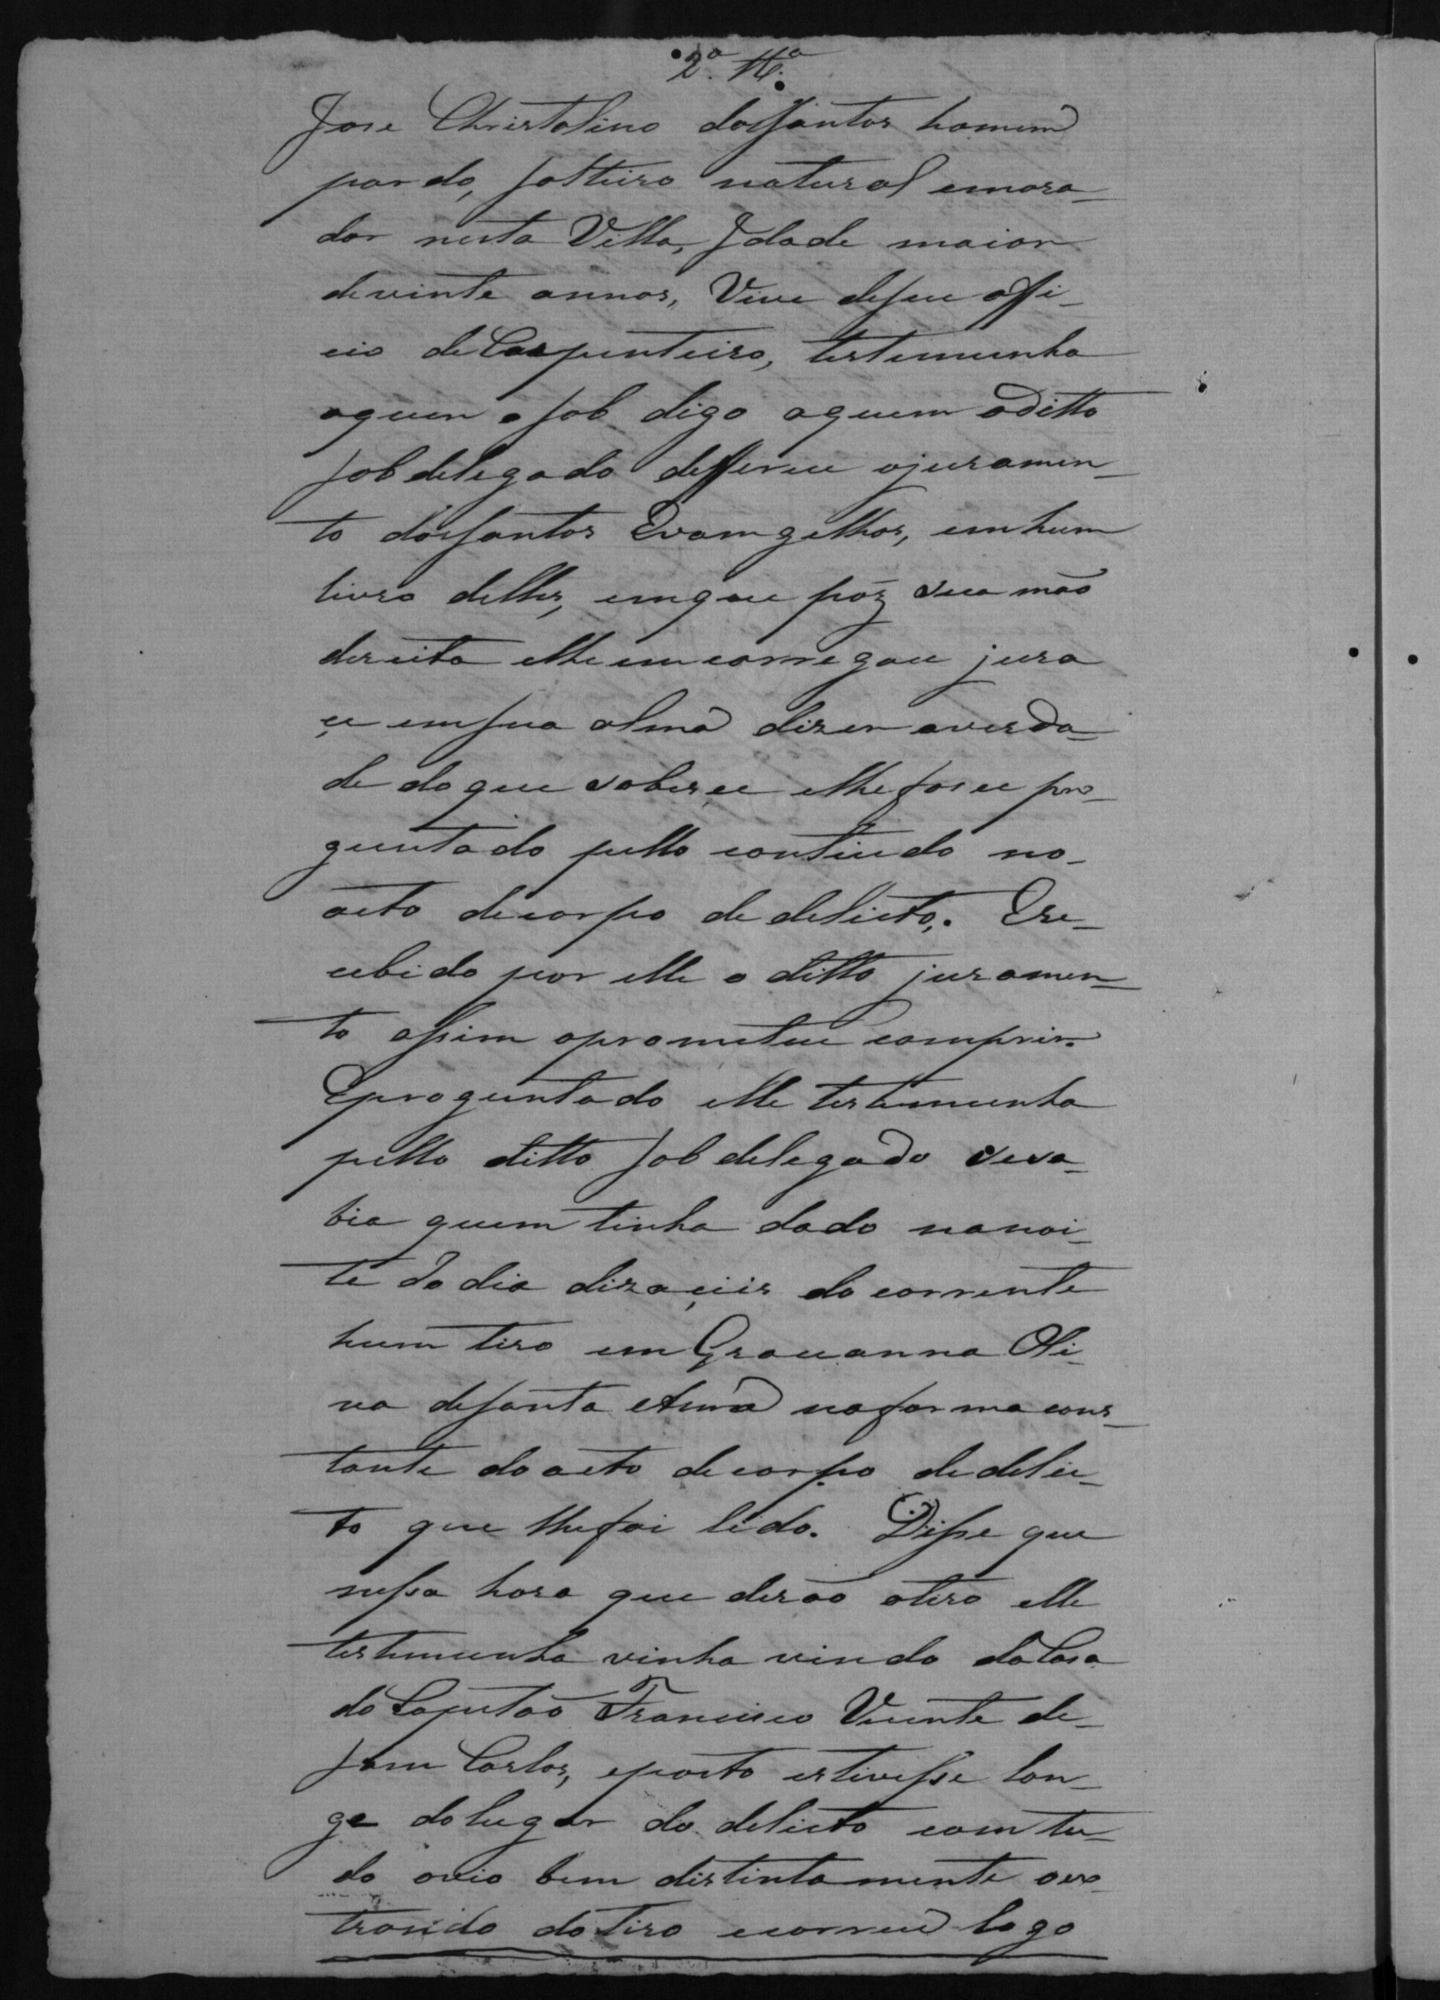 2ª. Tª.
Jose Christolino dos Santos homem
pardo, solteiro natural emora-
dor nesta Villa, Idade maior
devinte annos, Vive deseu offi-
cio de Carpenteiro, testemunha
aquem o sob digo aquem oditto
sobdelegado deffereu ojuramen-
to dos santos Evamgelhos, emhum
livro delles, emque pôz sua mão
dereita elhe emcarregou jura
çe emsua alma dizer averda-
de doque soberçe elhe foçe pro-
guntado pello contiudo no-
acto decorpo de delicto,. Ere-
cebido por elle o ditto juramen-
to assim oprometeu comprir.
Eproguntado elle testemunha
pello ditto sobdelegado sesa-
bia quem tinha dado nanoi-
te do dia dizaçeis do corrente
hum tiro em Grauanna Oli-
va desanta Anna naforma cons-
tante doacto decorpo de delic-
to que lhefoi lido. Disse que
nessa hora que derão otiro elle
testemunha vinha vindo da Casa
do Capitão Francisco Vicente de-
sam Carlos, eposto estivesse lon-
ge dolugar do delicto comtu-
do ovio bem distintamente oes-
trondo dotiro ecorreu logo